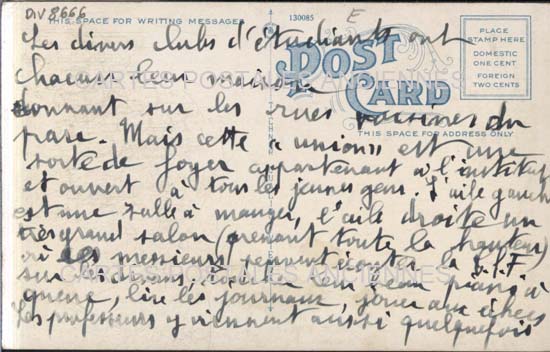 DIV 8666
THIS SPACE FOR WRITING MESSAGES
130085
E
POST CARD
PLACE
STAMP HERE
DOMESTIC
ONE CENT
FOREIGN
TWO CENTS
THIS SPACE FOR ADDRESS ONLY
CARTES POSTALES ANCIENNES
CARTES POSTALES ANCIENNES
Les divers clubs d'étudiants ont
chacun leur maison
donnant sur les rues voisines du
parc. Mais cette "union" est une
sorte de foyer appartenant à l'institut
et ouvert à tous les jeunes gens. L'aile gauche
est une salle à manger, l'aile droite un
très grand salon (prenant toute la hauteur)
où les messieurs peuvent écouter la T.S.F
sur les divans, un beau piano à
queue, lire les journaux, jouer aux échecs
Les professeurs y viennent aussi quelquefois